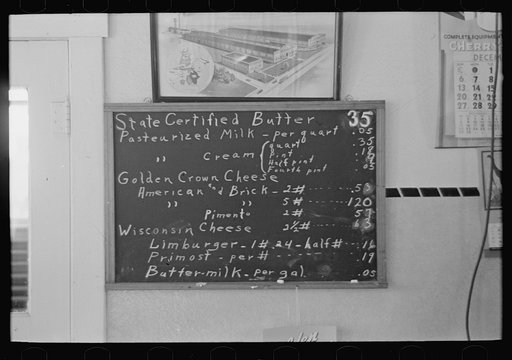 State Certified Butter 35
Pasteurized Milk - per quart .05
" Cream quart .35
Pint .18
Half pint
Fourth pint .05
Golden Crown Cheese
American and Brick - 2# .53
" " 5# 120
Pimento 2# 57
Wisconsin Cheese 2½# 63
Limburger - 1# .24 - half# .16
Primost - per # .19
Butter-milk - per gal .05
COMPLETE EQUIPMENT
CHERRY
DECEM
6 7 8
13 14 15
20 21 22
27 28 29